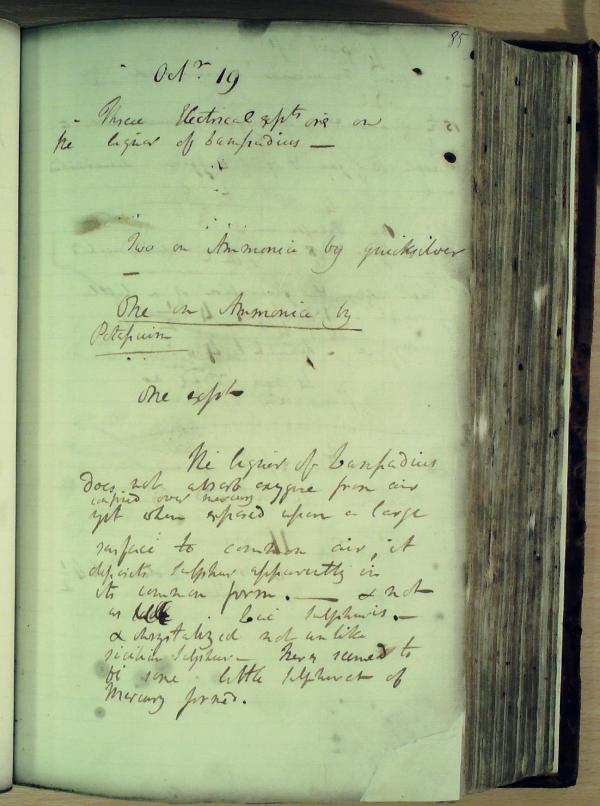 85
Octr. 19
- Three Electrical expts on
the liquor of Lampadius —
Two on Ammonia by quicksilver
—
One on Ammonia by
Potassium
One expt
The liquor of Lampadius
does not absorb oxygene from air
confined over mercury
yet when exposed upon a large
surface to common air, it
deposits sulphur apparently in
its common form. — & not
as Lac Sulphuris. —
& chrystalized not unlike
sicilian sulphur — there seemed to
be some little sulphuret of
Mercury formed.